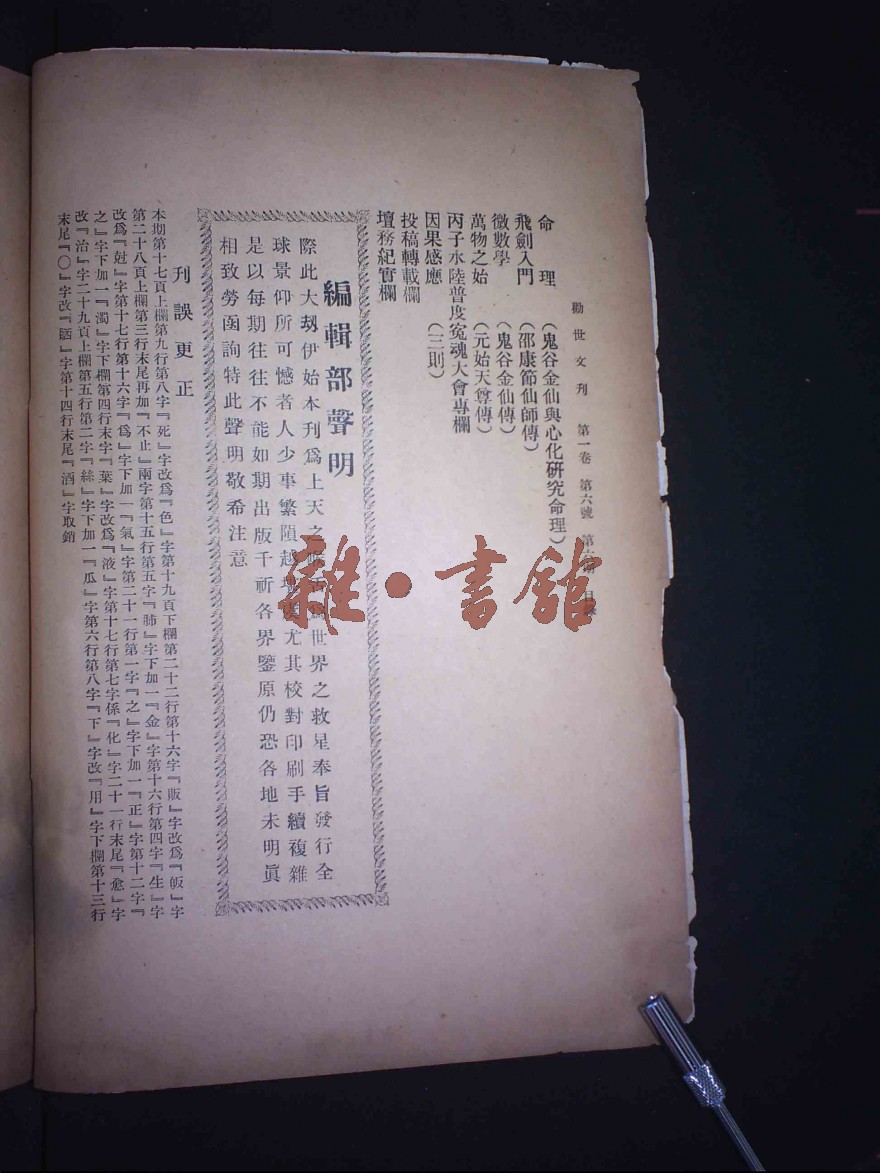 勸世文刊 第一卷 第六號 第 目
命理 (鬼谷金仙與心化研究命理)
飛劍入門 (邵康節仙師傳)
微數學 (鬼谷金仙傳)
萬物之始 (元始天尊傳)
丙子水陸普度冤魂大會專欄
因果感應 (三則)
投稿轉載欄
壇務紀實欄
編輯部聲明
際此大刼伊始本刊爲上天之喉舌爲世界之救星奉旨發行全
球景仰所可憾者人少事繁隕越 尤其校對印刷手續複雜
是以每期往往不能如期出版千祈各界鑒原仍恐各地未明眞
相致勞函詢特此聲明敬希注意
刊誤更正
本期第十七頁上欄第九行第八字『死』字改爲『色』字第十九頁下欄第二十二行第十六字『販』字改爲『皈』字
第二十八頁上欄第三行末尾再加『不止』兩字第十五行第五字『肺』字下加一『金』字第十六行第四字『生』字
改爲『尅』字第十七行第十六字『爲』字下加一『氣』字第二十一行第一字『之』字下加一『正』字第十二字『
之』字下加一『濁』字下欄第四行末字『葉』字改爲『液』字第十七行第七字係『化』字二十一行末尾『愈』字
改『治』字二十九頁上欄第五行第二字『絲』字下加一『瓜』字第六行第八字『下』字改『用』字下欄第十三行
末尾『〇』字改『晒』字第十四行末尾『酒』字取銷
雜·書館